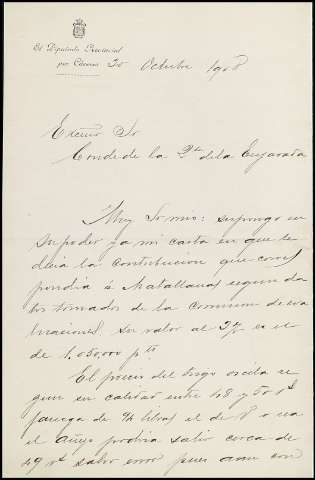 El Diputado Provincial
por Cáceres 30 Octubre 1908
Excmo Sr
Conde de la Qta de la Enjarada
Muy Sr mio: supongo en
su poder ya mi carta en que le
decia la contribucion que corres
pondia á Matallana segun da
tos tomados de la Comision de eva
luaciones. Su valor al 3 % es el
de 1,050,000 pts
El precio del trigo oscila se
gun su calidad entre 48 y 50 rs
fanega de 94 libras el de
el añejo podria salir cerca de
49 rs salvo error pues aun con